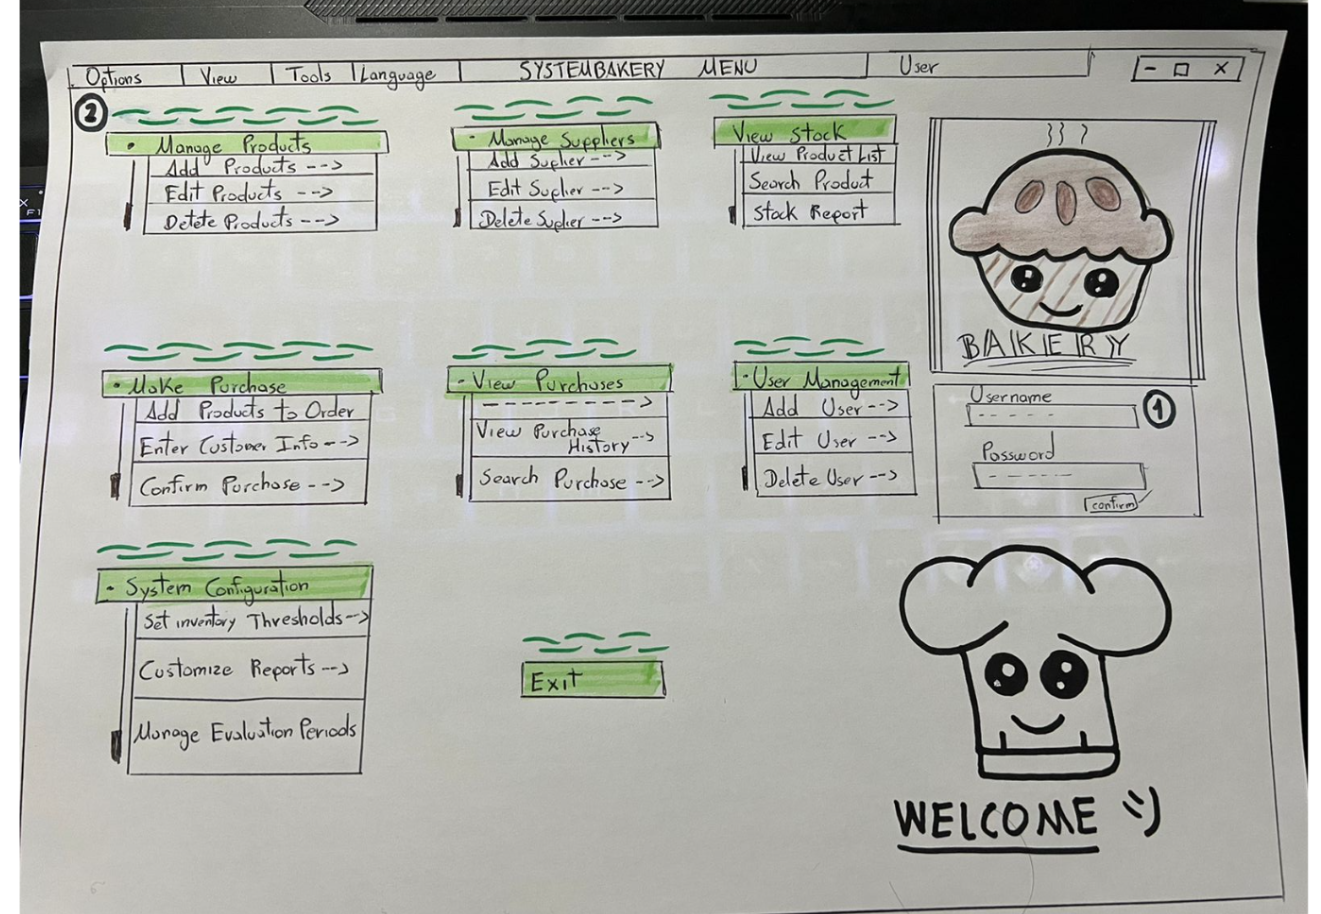 Options View Tools Language SYSTEMBAKERY MENU User - □ X
2
• Manage Products
Add Products -->
Edit Products -->
Detete Products -->
• Manage Suppliers
Add Suplier -->
Edit Suplier -->
Delete Suplier -->
View Stock
View Product List
Search Product
Stock Report
BAKERY
• Make Purchase
Add Products to Order
Enter Customer Info -->
Confirm Purchase -->
• View Purchases
--------->
View Purchase
History -->
Search Purchase -->
• User Management
Add User -->
Edit User -->
Delete User -->
Username
1
-----
Password
-----
confirm
• System Configuration
Set inventory Thresholds -->
Customize Reports -->
Manage Evaluation Periods
Exit
WELCOME :)
F1